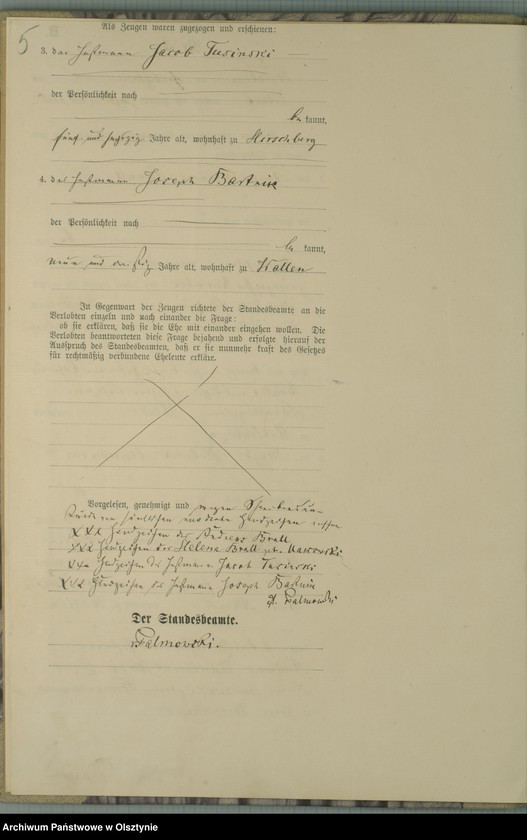 5
Als Zeugen waren zugezogen und erschienen:
3. der Instmann Jacob Tusinski
der Persönlichkeit nach
be kannt,
fünf und sechszig Jahre alt, wohnhaft zu Hirschberg
4. der Instmann Joseph Bartnik
der Persönlichkeit nach
be kannt,
neun und dreißig Jahre alt, wohnhaft zu Wallen
In Gegenwart der Zeugen richtete der Standesbeamte an die
Verlobten einzeln und nach einander die Frage:
ob sie erklären, daß sie die Ehe mit einander eingehen wollen. Die
Verlobten beantworteten diese Frage bejahend und erfolgte hierauf der
Ausspruch des Standesbeamten, daß er sie nunmehr kraft des Gesetzes
für rechtmäßig verbundene Eheleute erkläre.
Vorgelesen, genehmigt und wegen Schreibensun-
kunde von sämtlichen mit Handzeichen versehen
XXX Handzeichen des Andreas Brall
XXX Handzeichen der Helena Brall geb.
XXX Handzeichen des Instmann Jacob Tusinski
XXX Handzeichen des Instmann Joseph Bartnik
Palmowski
Der Standesbeamte.
Palmowski.
Archiwum Państwowe w Olsztynie